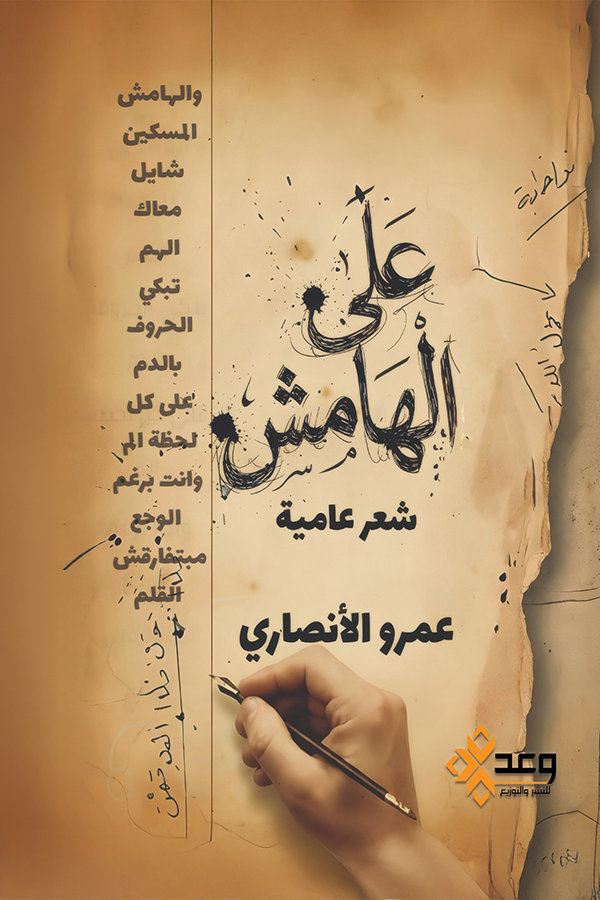 على
الهامش
شعر عامية
عمرو الأنصاري
والهامش
المسكين
شايل
معاك
الهم
تبكي
الحروف
بالدم
على كل
لحظة الم
وانت برغم
الوجع
مبتفارقش
القلم
وعد
للنشر والتوزيع